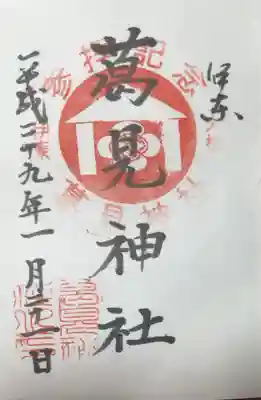 伊東
葛見神社
平成二十九年一月 日
参拝記念
伊東
葛見神社